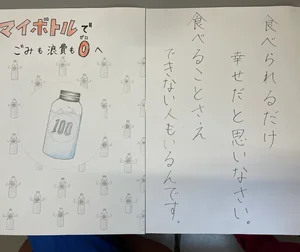 マイボトルで
ごみも浪費も0へ
ゼロ
100
食べられるだけ
幸せだと思いなさい。
食べることさえ
できない人もいるんです。